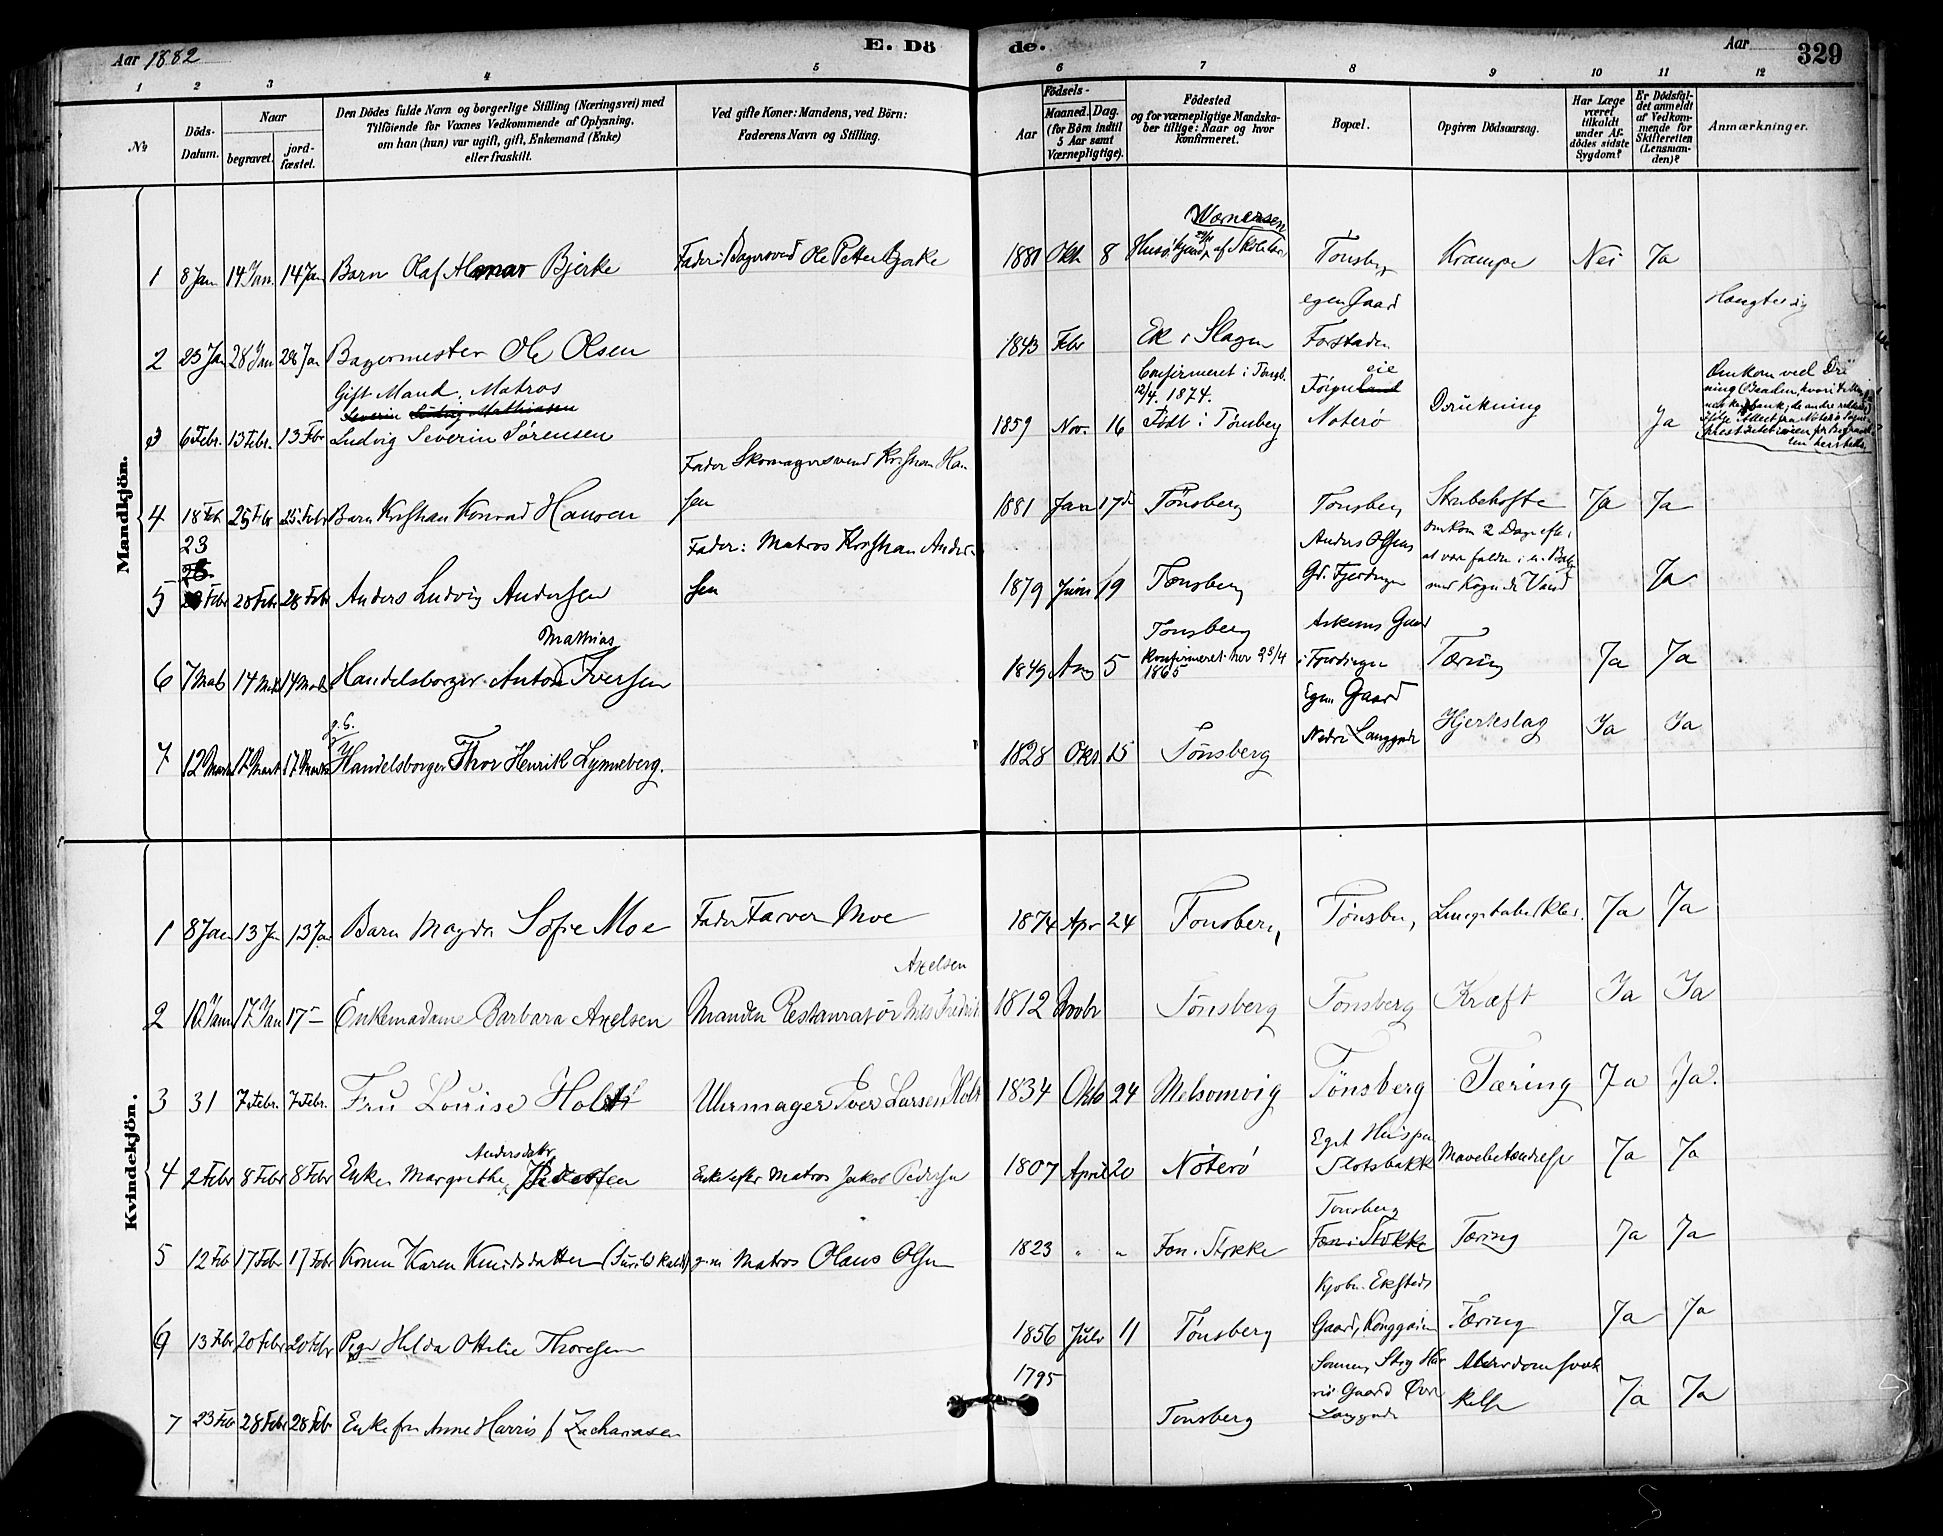 Aar 1882
E. Dö
de.
Aar
329
1 2 3 4 5 6 7 8 9 10 11 12
№
Döds-Datum.
Naar
begravet.
jord-fæstet.
Den Dödes fulde Navn og borgerlige Stilling (Næringsvei) med
Tilföiende for Voxnes Vedkommende af Oplysning,
om han (hun) var ugift, gift, Enkemand (Enke)
eller fraskilt.
Ved gifte Koner: Mandens, ved Börn:
Faderens Navn og Stilling.
Födsels-
Aar
Maaned.
Dag.
(for Börn indtil
5 Aar samt
Værnepligtige).
Födested
og for værnepligtige Mandska-
ber tillige: Naar og hvor
konfirmeret.
Bopæl.
Opgiven Dödsaarsag.
Har Læge
været
tilkaldt
under Af-
dödes sidste
Sygdom?
Er Dödsfal-
det anmeldt
af Vedkom-
mende for
Skifteretten
(Lensman-
den)?
Anmærkninger.
Mandkjön.
1 8 Jan 14 Jan. 14 Jan Barn Olaf Bjerke Fader: Bagersvend Ole Petter Bjerke 1881 Okt 8 Tønsberg Krampe Nei Ja
egen Gaard
2 23 Jan 28 Jan 28 Jan Bagermester Ole Olsen 1843 Febr Ek i Slagen Forstaden
Gift Mand. Matros
Confirmeret i Tønsb.
12/4. 1874.
3 6 Febr. 13 Febr. 13 Febr Ludvig Severin Sørensen 1859 Nov. 16 Født i Tønsberg Noterø Drukning Ja
Omkom ved
Fader Skomagersvend Kristian Han
sen
4 18 Feb 25 Febr 25 Febr Barn Kristian Konrad Hansen 1881 Jan 17de Tønsberg Tonsberg Strubehoste Ja Ja
23
Fader: Matros Kristian Ander-
sen
Anders Olsens
omkom 2 Dage efter
5 Febr 28 Febr 28 Febr Anders Ludvig Andersen 1879 Juni 19 Tønsberg Gd. Fjerdingen med Kogende Vand Ja
Mathias
Askems Gaard
6 7 Mats 14 Mats 14 Mats Handelsborger Anton Iversen 1849 Aug 5 Tønsberg
Konfirmeret her 23/4
1865
i Fjerdingen Tæring Ja Ja
g. G.
Egen Gaard
7 12 Marts 17 Mart 17 Marts Handelsborger Thor Henrik Lynneberg. 1828 Okt. 15 Tønsberg Nedre Langgade Hjerteslag Ja Ja
Kvindekjön.
1 8 Jan 13 Jan 13 Jan Barn Magda Sofie Moe Fader Farver Moe 1874 Apr 24 Tonsberg Tønsberg Ja Ja
Axelsen
2 10 Jan 17 Jan 17 – Enkemadame Barbara Axelsen Manden Restauratør Nils Fredrik 1812 Novbr Tønsberg Tønsberg Kræft Ja Ja
3 31 7 Febr. 7 Febr. Fru Louise Holst Uhrmager Iver Larsen Holst 1834 Okto 24 Melsomvig Tønsberg Tæring Ja Ja.
Andersdatr
Eget Hus paa
4 2 Febr 8 Febr 8 Febr Enke Margrethe Pedersen Enke efter Matros Jakob Pedersen 1807 April 20 Nøterø Slotsbakk Mavebetændelse Ja Ja
Tonsberg
5 12 Feb 17 Febr 17 Febr Konen Karen Knudsdatter g. m Matros Olaus Olsen 1823 " " Fon i Stokke Fon i Stokke Tæring Ja Ja
Kjøbm. Eksteds
6 13 Febr 20 Febr 20 Febr Pige Hilda Ottilie Thoresen 1856 Juli 11 Tønsberg Gaard, Tæring Ja Ja
1795
7 23 Feb 28 Febr 28 Feb Enkefru Anne Harris f Zachariasen Tonsberg Gaard Øvre
Langgade
Alderdomssvæk
kelse Ja Ja